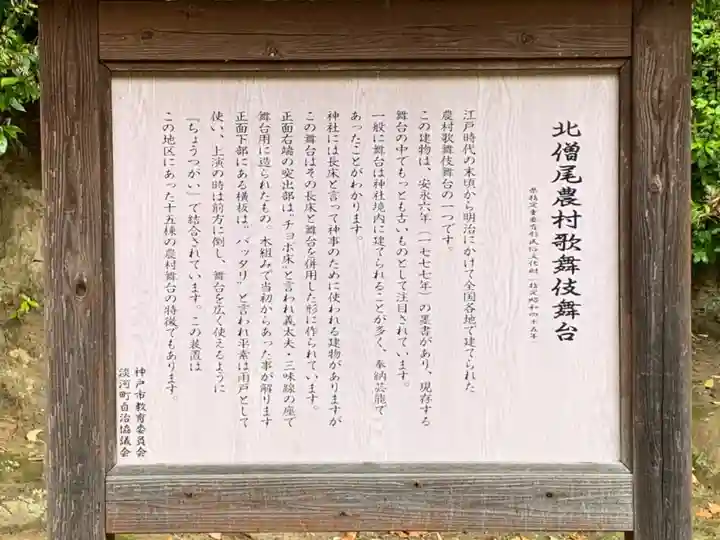 北僧尾農村歌舞伎舞台
県指定重要有形民俗文化財(指定昭和四十五年)
江戸時代の末頃から明治にかけて全国各地で建てられた
農村歌舞伎舞台の一つです。
この建物は、安永六年(一七七七年)の墨書があり、現存する
舞台の中でもっとも古いものとして注目されています。
一般に舞台は神社境内に建てられることが多く、奉納芸能で
あったことがわかります。
神社には長床と言って神事のために使われる建物がありますが
この舞台はその長床と舞台を併用した形に作られています。
正面右端の突出部は"チョボ床"と言われ義太夫・三味線の座で
舞台用に造られたもの。木組みで当初からあった事が解ります
正面下部にある横板は"バッタリ"と言われ平素は雨戸として
使い、上演の時は前方に倒し、舞台を広く使えるように
『ちょうつがい』で結合されています。この装置は
この地区にあった十五棟の農村舞台の特徴でもあります。
神戸市教育委員会
淡河町自治協議会